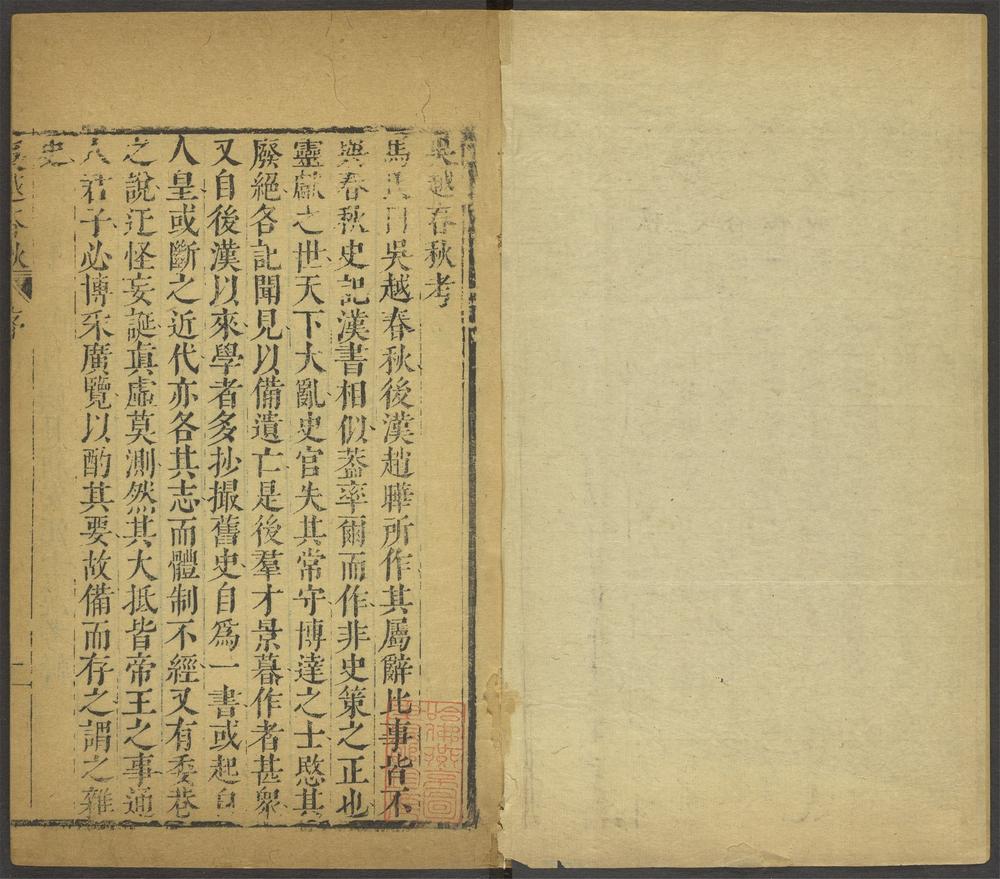 吳越春秋考
馬氏曰吳越春秋後漢趙曄所作其屬辭比事皆不
與春秋史記漢書相似葢率爾而作非史策之正也
靈獻之世天下大亂史官失其常守博達之士愍其
廢絕各記聞見以備遺亡是後羣才景慕作者甚衆
又自後漢以來學者多抄撮舊史自爲一書或起自
人皇或斷之近代亦各其志而體制不經又有委巷
之說迂怪妄誕眞虛莫測然其大抵皆帝王之事通
人君子必博采廣覽以酌其要故備而存之謂之雜
史
吳越春秋 序 二